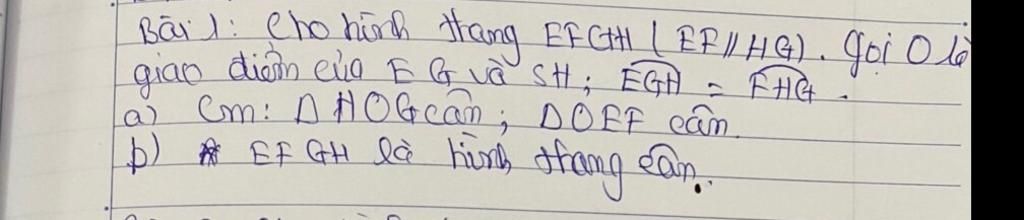 Bài 1: Cho hình thang EFGH (EF//HG). Gọi O là
giao điểm của EG và SH; EGH = FHG.
a) Cm: Δ HOG cân; ΔOEF cân.
b) EFGH là hình thang cân.